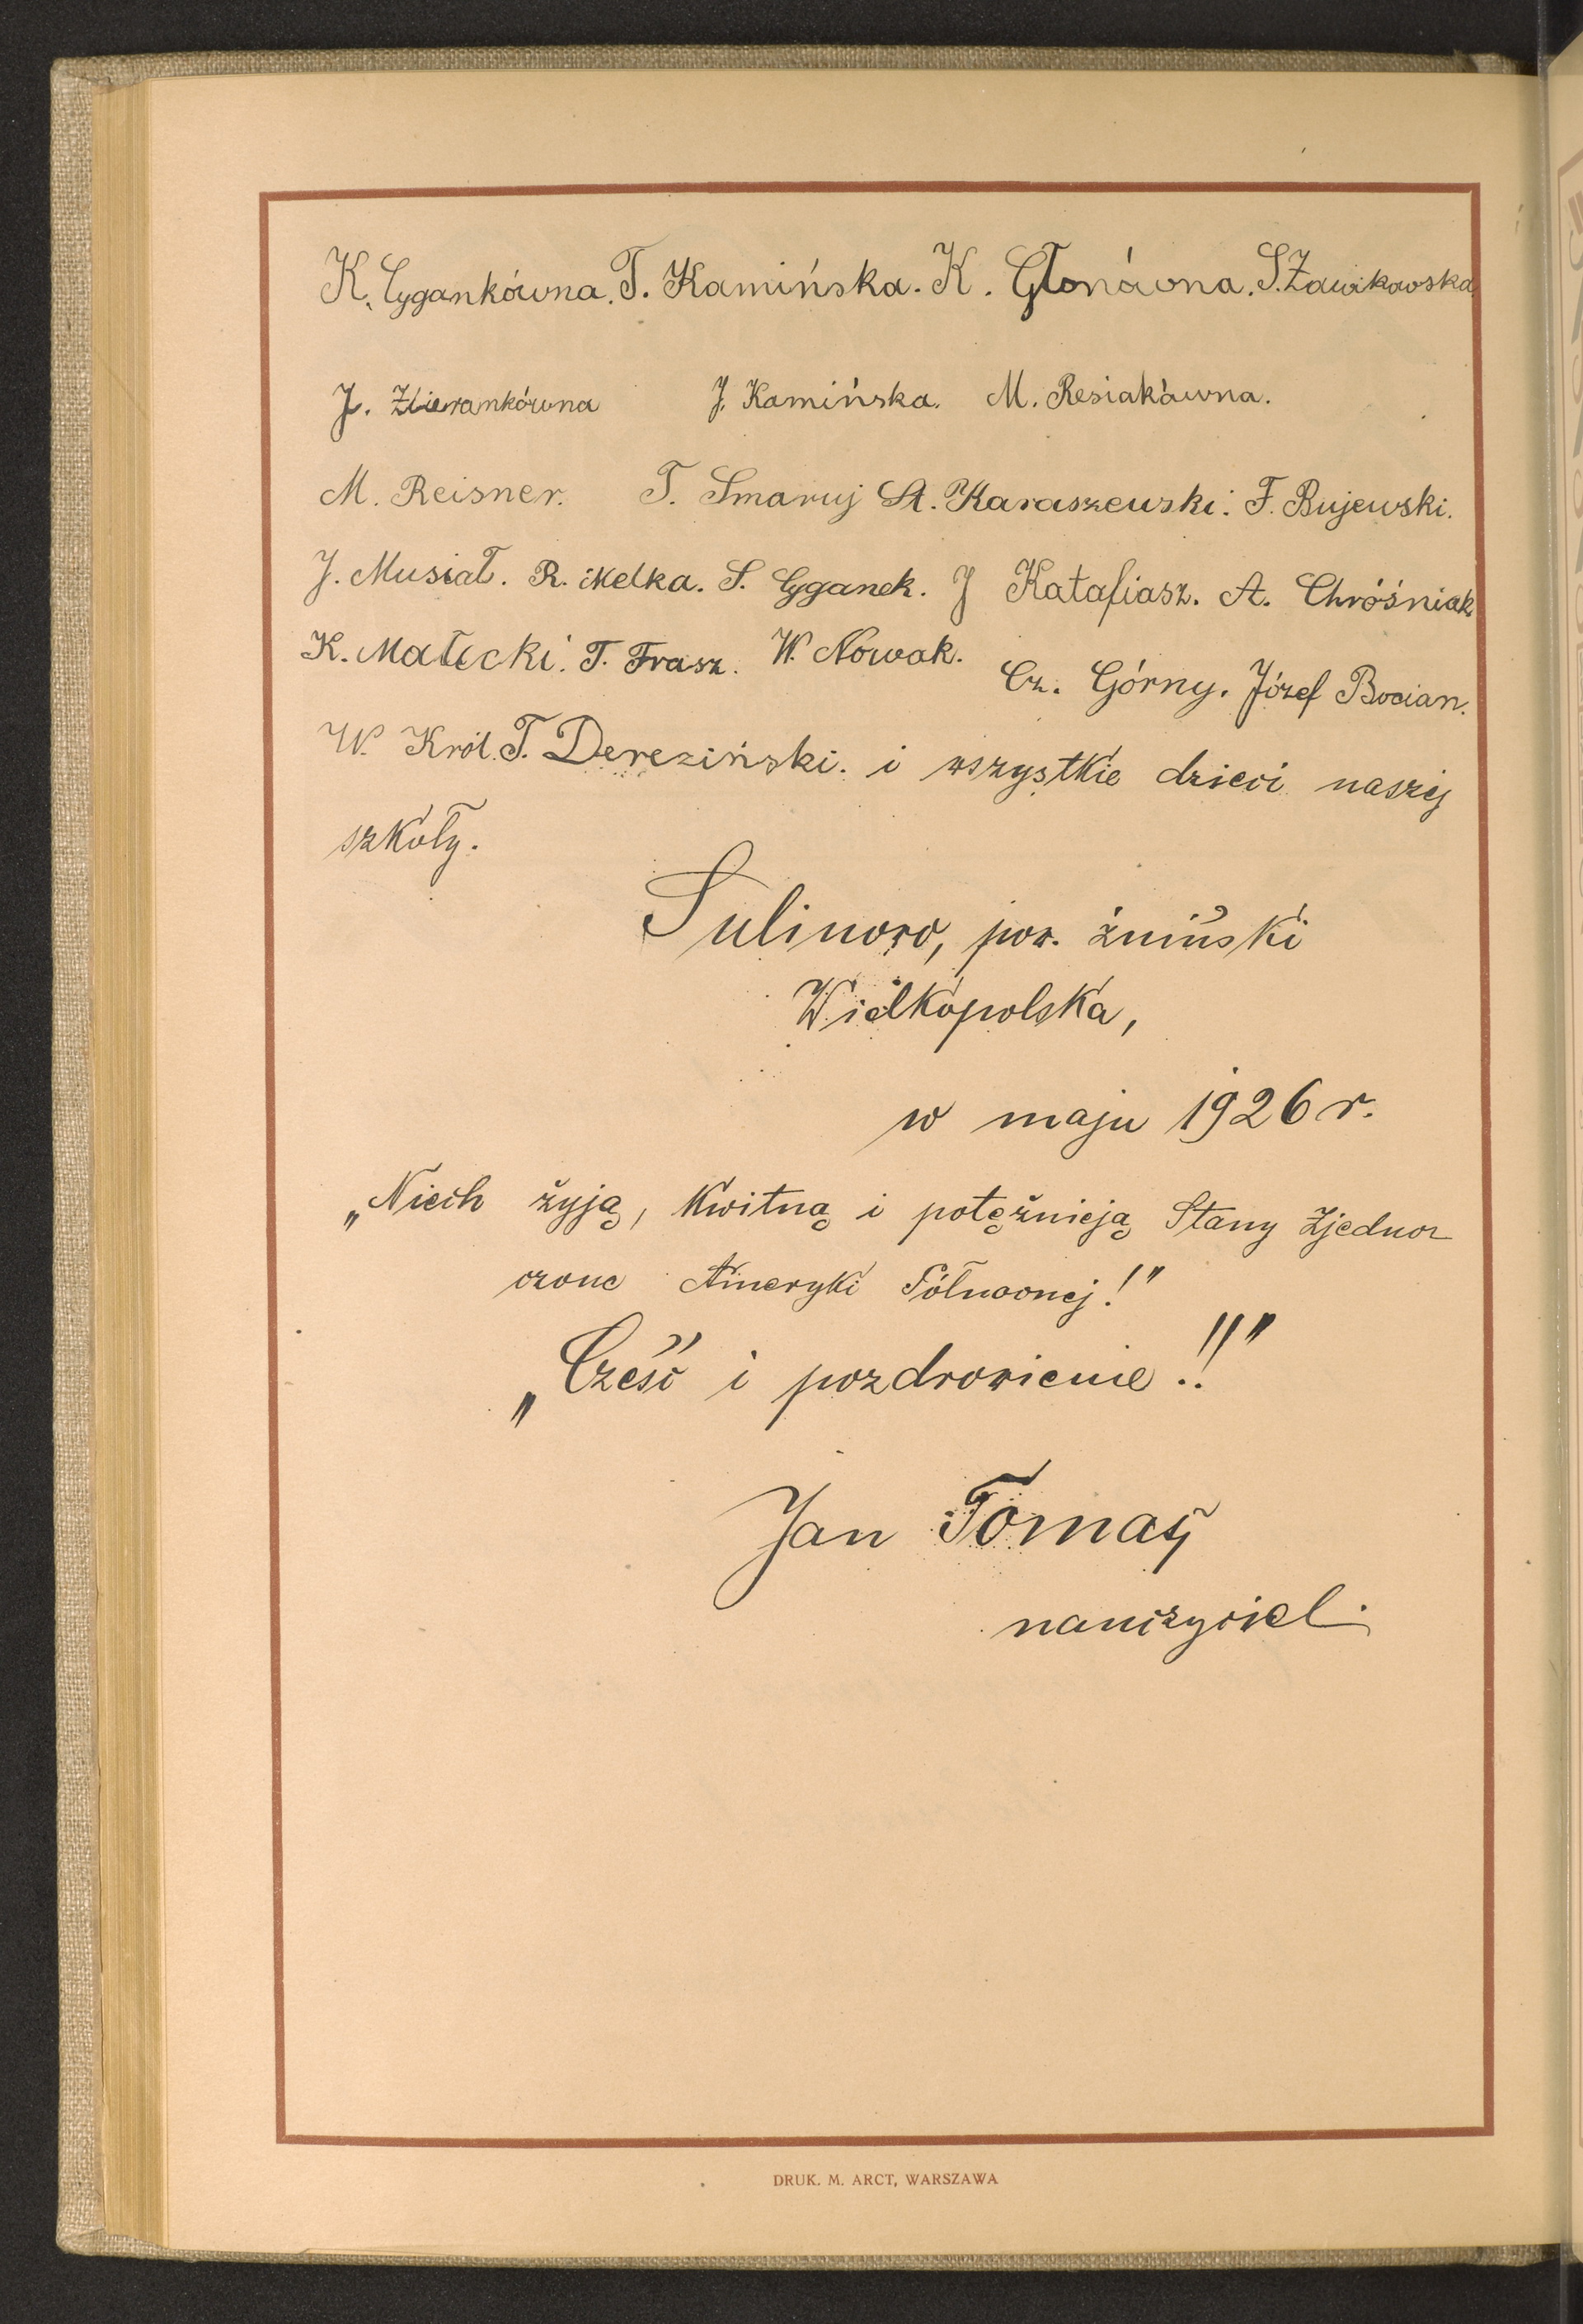 K. Cygankówna. T. Kamińska. K. Głonówna. S. Zawikowska
J. Zbierankówna J. Kamińska. M. Resiakówna.
M. Reisner. T. Smaruj St. Karaszewski. F. Bujewski.
J. Musiał. R. Melka. S. Cyganek. J Katafiasz. A. Chróśniak
K. Małecki. T. Frasz. W. Nowak. Cz. Górny. Józef Bocian.
W. Król. T. Dereziński. i wszystkie dzieci naszej
szkoły.
Sulinowo, pow. żniński
Wielkopolska,
w maju 1926 r.
„Niech żyją, kwitną i potężnieją Stany Zjedno-
czone Ameryki Północnej!"
„Cześć i pozdrowienie!!"
Jan Tomaś
nauczyciel.
DRUK. M. ARCT, WARSZAWA